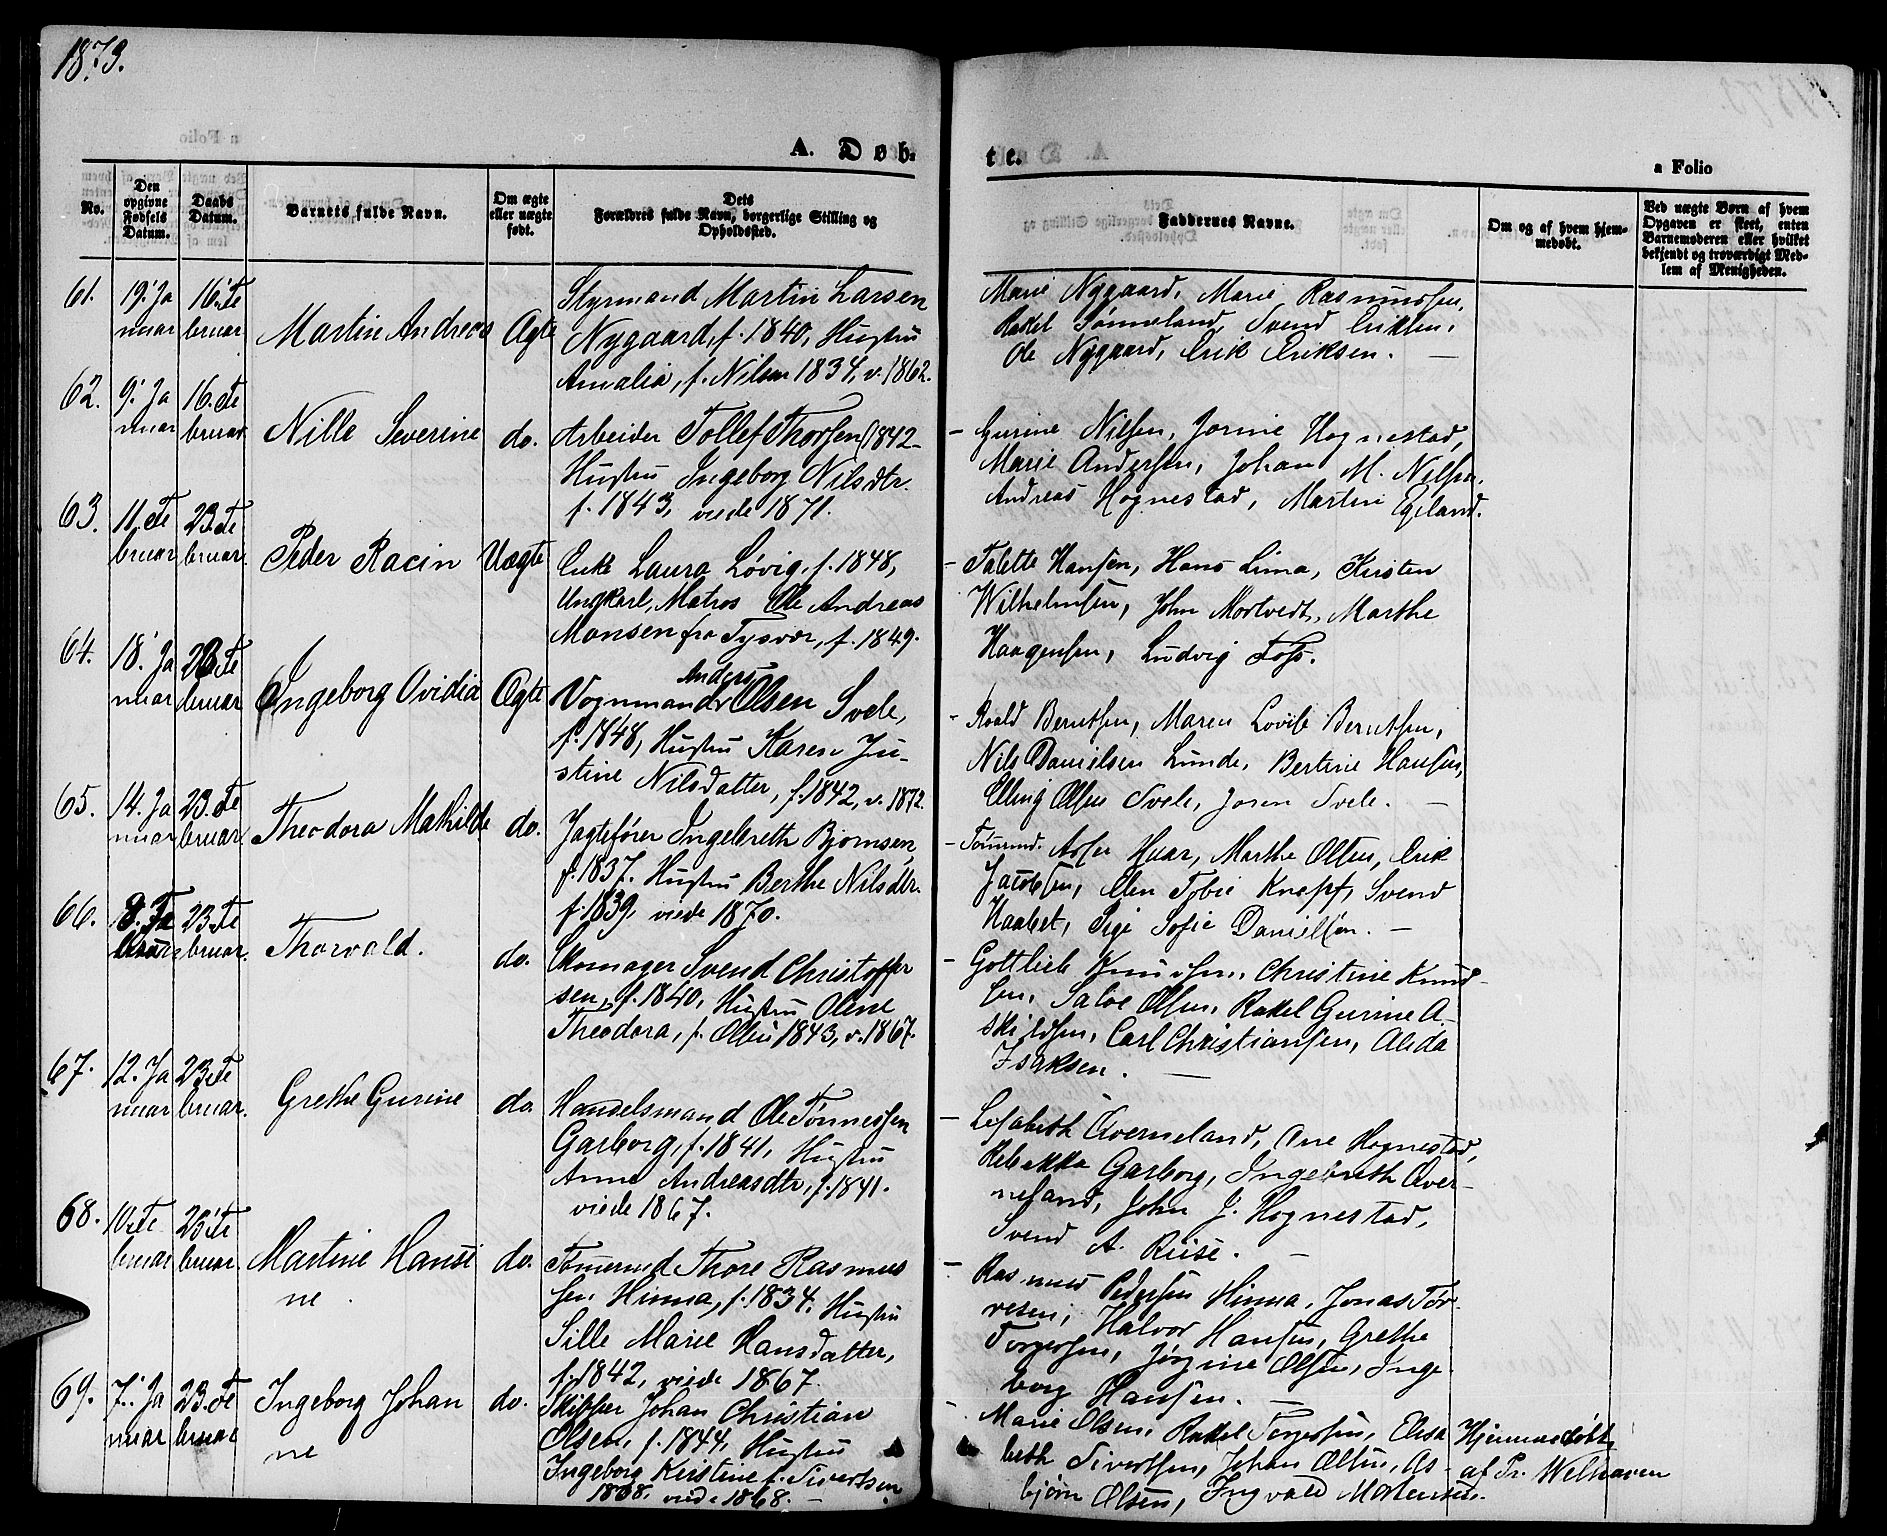 1873.
A. Døb-
te.
a Folio
No.
Den opgivne Fødsels Datum.
Daabs Datum.
Barnets fulde Navn.
Om ægte eller uægte født.
Dets Forældres fulde Navn, borgerlige Stilling og Opholdssted.
Faddernes Navne.
Om og af hvem hjem-
medøbt.
Ved uægte Børn af hvem
Opgaven er skeet, enten
Barnemoderen eller hvilket
bekjendt og troværdigt Med-
lem af Menigheden.
61.
19. Ja
nuar
16. Fe
bruar
Martin Andreas
Ægte
Styrmand Martin Larsen
Nygaard, f. 1840, Hustru
Amalia, f. Nilsen 1834, v. 1862.
Marie Nygaard, Marie Rasmussen,
Rakel Sømmeland, Svend Eriksen,
Ole Nygaard, Erik Eriksen. —
62.
9. Ja
nuar
16. Fe
bruar
Nille Severine
do.
Arbeider Tollef Thorsen (1842-
Hustru Ingeborg Nilsdtr.
f. 1843, viede 1871.
- Gurine Nilsen, Jorine Hognestad,
Marie Andersen, Johan M. Nilsen,
Andreas Hognestad, Martin Egeland.
63.
11. Fe
bruar
23. Fe
bruar.
Peder Racin
Uægte
Enke Laura Løvig, f. 1848,
Ungkarl, Matros Ole Andreas
Monsen fra Tysvær, f. 1849.
- Talette Hansen, Hans Lima, Kirsten
Wilhelmsen, John Mortvedt, Marthe
Haagensen, Ludvig Foss.
64.
18. Ja
nuar
23. Fe
bruar
Ingeborg Ovidia
Ægte
Anders
Vognmand Olsen Svele,
f. 1848, Hustru Karen Ju-
stine Nilsdatter, f. 1842, v. 1872.
- Roald Berntsen, Maren Lovise Berntsen,
Nils Danielsen Lunde, Bertine Hansen,
Elling Olsen Svele, Joren Svele. —
65.
14. Ja
nuar
23. Fe
bruar.
Theodora Mathilde
do.
Jagtefører Ingebreth Bjørnsen,
f. 1837. Hustru Berthe Nilsdtr.
f. 1839, viede 1870.
- Tømmd. Asser Haar, Marthe Olsen, Erik
Jacobsen, Elen Tobie Knapf, Svend
Haabet, Sigi Sofie Danielsen. —
66.
8. Fe
bruar
23. Fe
bruar.
Thorvald.
do.
Skomager Svend Christoffer
sen, f. 1840, Hustru Olene
Theodora, f. Olsen 1843, v. 1867.
- Gottlieb Knudsen, Christine Knud-
sen, Saloe Olsen, Rakel Gurine A-
skildsen, Carl Christiansen, Alida
Isaksen. —
67.
12. Ja
nuar
23. Fe
bruar.
Grethe Gurine
do.
Handelsmand Ole Tønnessen
Garborg, f. 1841, Hustru
Anne Andreasdtr, f. 1841.
viede 1867.
- Lisabeth Qverneland, Ane Hognestad,
Rebekka Garborg, Ingebreth Qver-
neland, John J. Hognestad,
Svend A. Riise. —
68.
10. Fe
bruar
23. Fe
bruar.
Martine Hansi
ne.
do.
Tømrmd Thore Rasmus
sen Hinna, f. 1834, Hustru
Sille Marie Hansdatter,
f. 1842, viede 1867.
- Rasmus Pedersen Hinna, Jonas Tør-
resen, Halvor Hansen, Grethe
Torgersen, Jørgine Olsen, Inge-
borg Hansen. —
69.
7. Ja
nuar
23. Fe
bruar
Ingeborg Johan
ne
do.
Skipper Johan Christian
Olsen, f. 1844, Hustru
Ingeborg Kirstine f. Sivertsen
1838, viede 1868. —
- Marie Olsen, Rakel Torgersen, Elisa
beth Sivertsen, Johan Olsen, As-
bjørn Olsen, Ingvald Mortensen.
Hjemmedøbt
af Pr. Welhaven